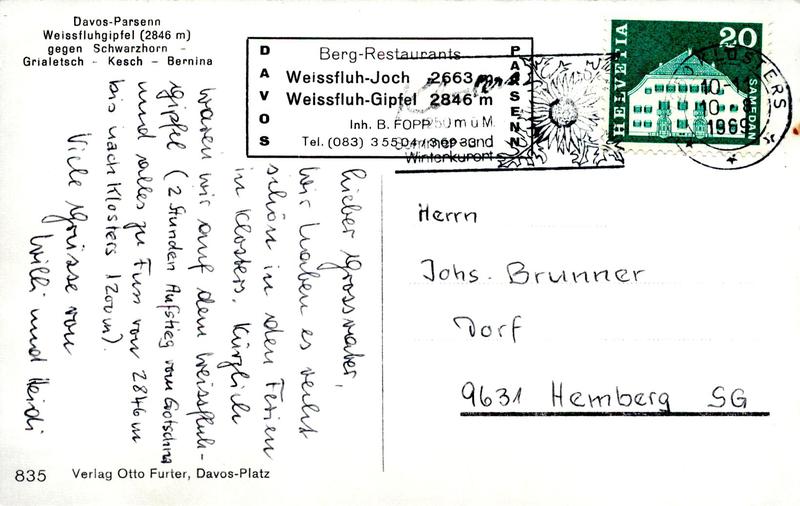 Davos-Parsenn
Weissfluhgipfel (2846 m)
gegen Schwarzhorn -
Grialetsch - Kesch - Bernina
DAVOS
PARSENN
Berg-Restaurants
Weissfluh-Joch 2663 m
Weissfluh-Gipfel 2846 m
Inh. B. FOPP
Tel. (083) 3 55 04 /
und
Winterkurort
HELVETIA
20
SAMEDAN
KLOSTERS
10
1969
Lieber Grossvater,
Wir haben es recht
schön in den Ferien
in Klosters. Kürzlich
waren wir auf dem Weissfluh-
gipfel (2 Stunden Aufstieg vom Gotschna
und alles zu Fuss von 2846 m
bis nach Klosters 1200 m).
Viele Grüsse von
Willi und Heidi
Herrn
Johs. Brunner
Dorf
9631 Hemberg SG
835 Verlag Otto Furter, Davos-Platz